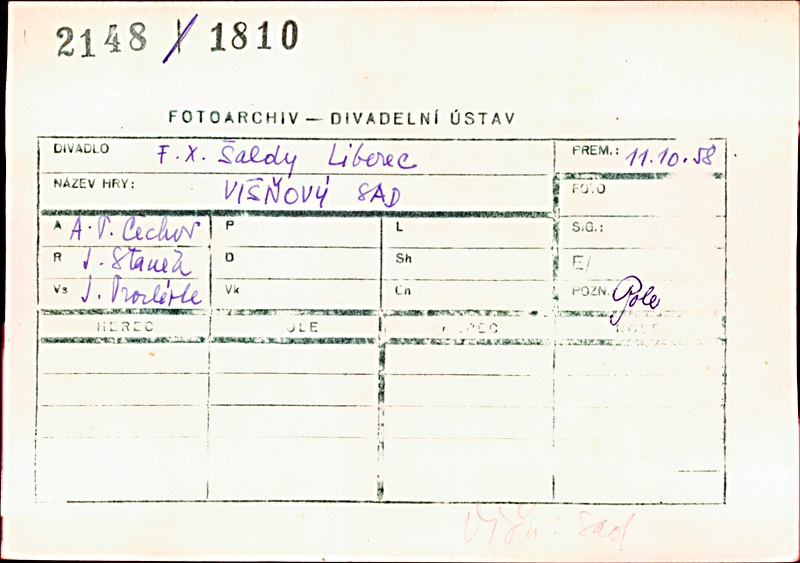 2148 / 1810
FOTOARCHIV — DIVADELNÍ ÚSTAV
DIVADLO F. X. Šaldy Liberec PREM.: 11.10.58
NÁZEV HRY: VIŠŇOVÝ SAD FOTO
A A. P. Čechov P L SIG.:
R J. Staněk D Sh E/
Vs J. Vk Cn POZN.
HEREC
Višň. sad